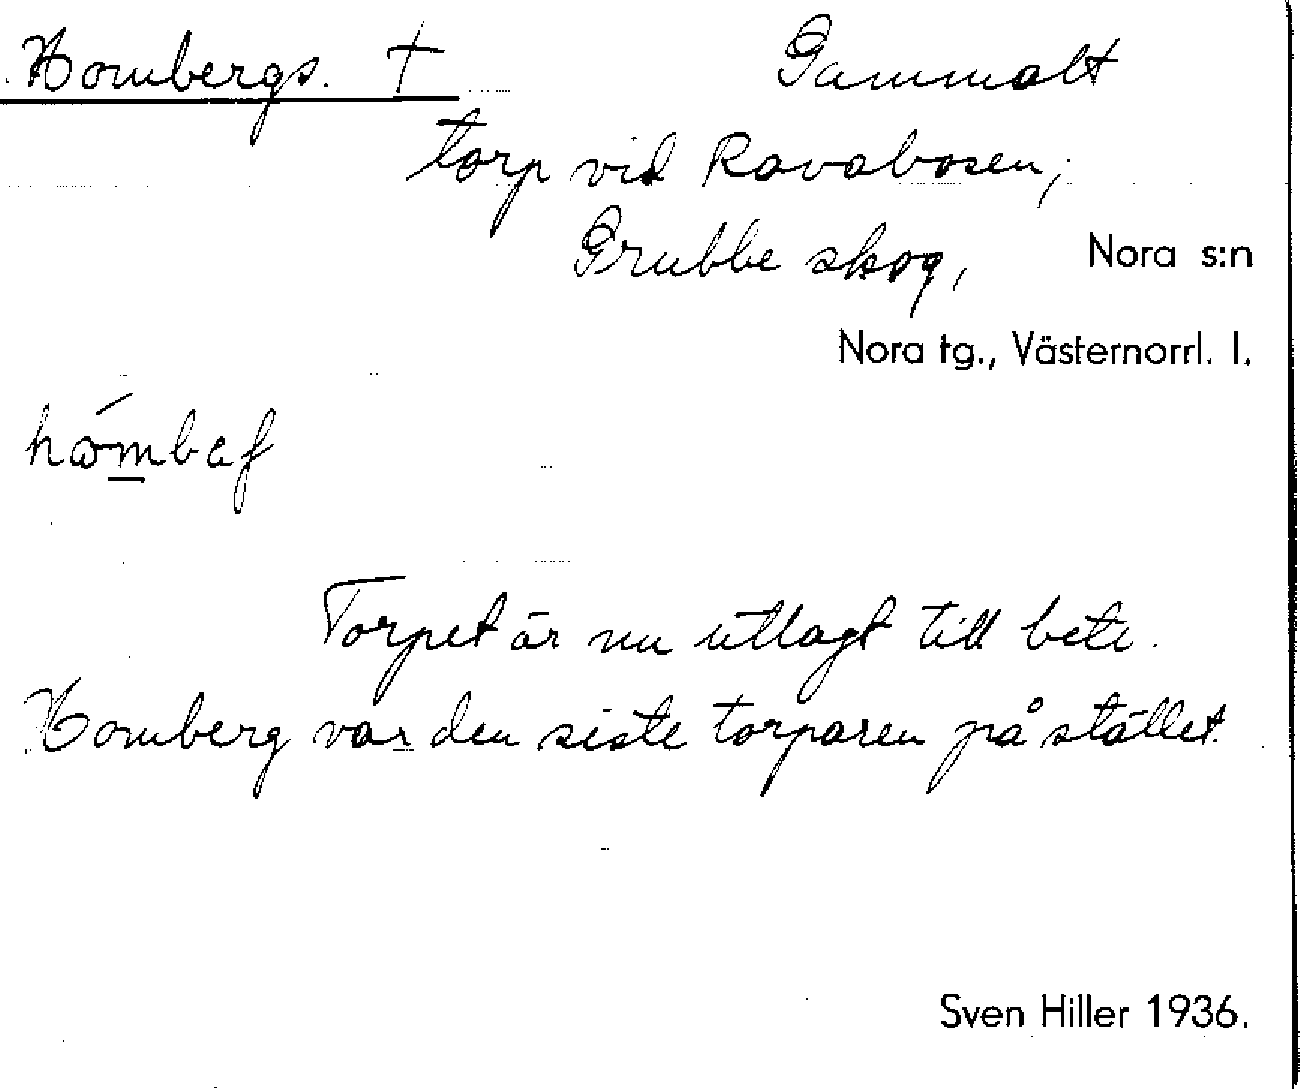 Hombergs. † Gammalt
torp vid Ravabosen,
Grubbe skog, Nora s:n
Nora tg., Västernorrl. l.
Torpet är nu utlagt till bete.
Homberg var den siste torparen på stället.
Sven Hiller 1936.